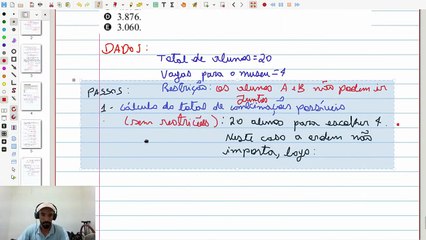 D 3.876.
E 3.060.
DADOS:
Total de alunos = 20
Vagas para o museu = 4
Restrição: os alunos A e B não podem ir
juntos
PASSOS:
1 - cálculo do total de combinações possíveis
(sem restrições): 20 alunos para escolher 4.
Neste caso a ordem não
importa, logo: